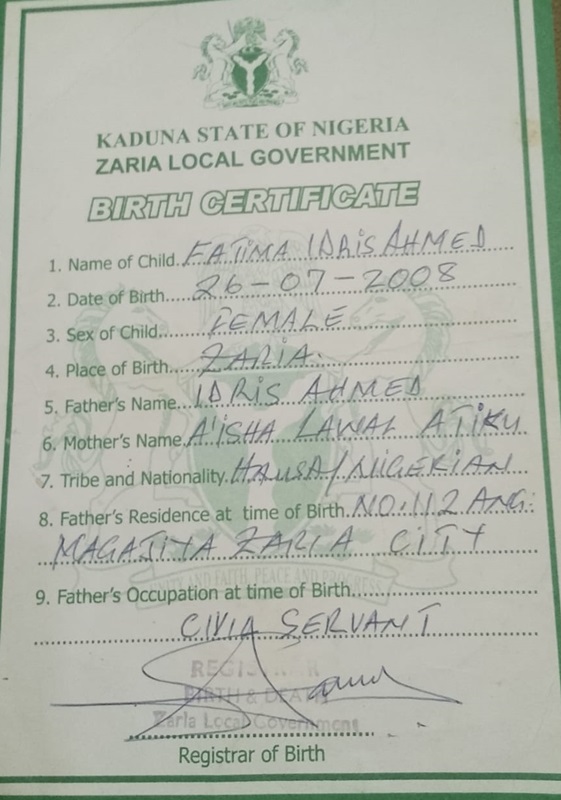 KADUNA STATE OF NIGERIA
ZARIA LOCAL GOVERNMENT
BIRTH CERTIFICATE
1. Name of Child. FATIMA IDRIS AHMED
2. Date of Birth.... 26-07-2008
3. Sex of Child...... FEMALE
4. Place of Birth.... ZARIA.
5. Father's Name... IDRIS AHMED
6. Mother's Name. A'ISHA LAWAL ATIKU
7. Tribe and Nationality. HAUSA/NIGERIAN
8. Father's Residence at time of Birth. NO. 112 ANG:
MAGAJIYA ZARIA CITY
9. Father's Occupation at time of Birth
CIVIA SERVANT
REGISTRAR
BIRTH & DEATH
Zaria Local Government
Registrar of Birth